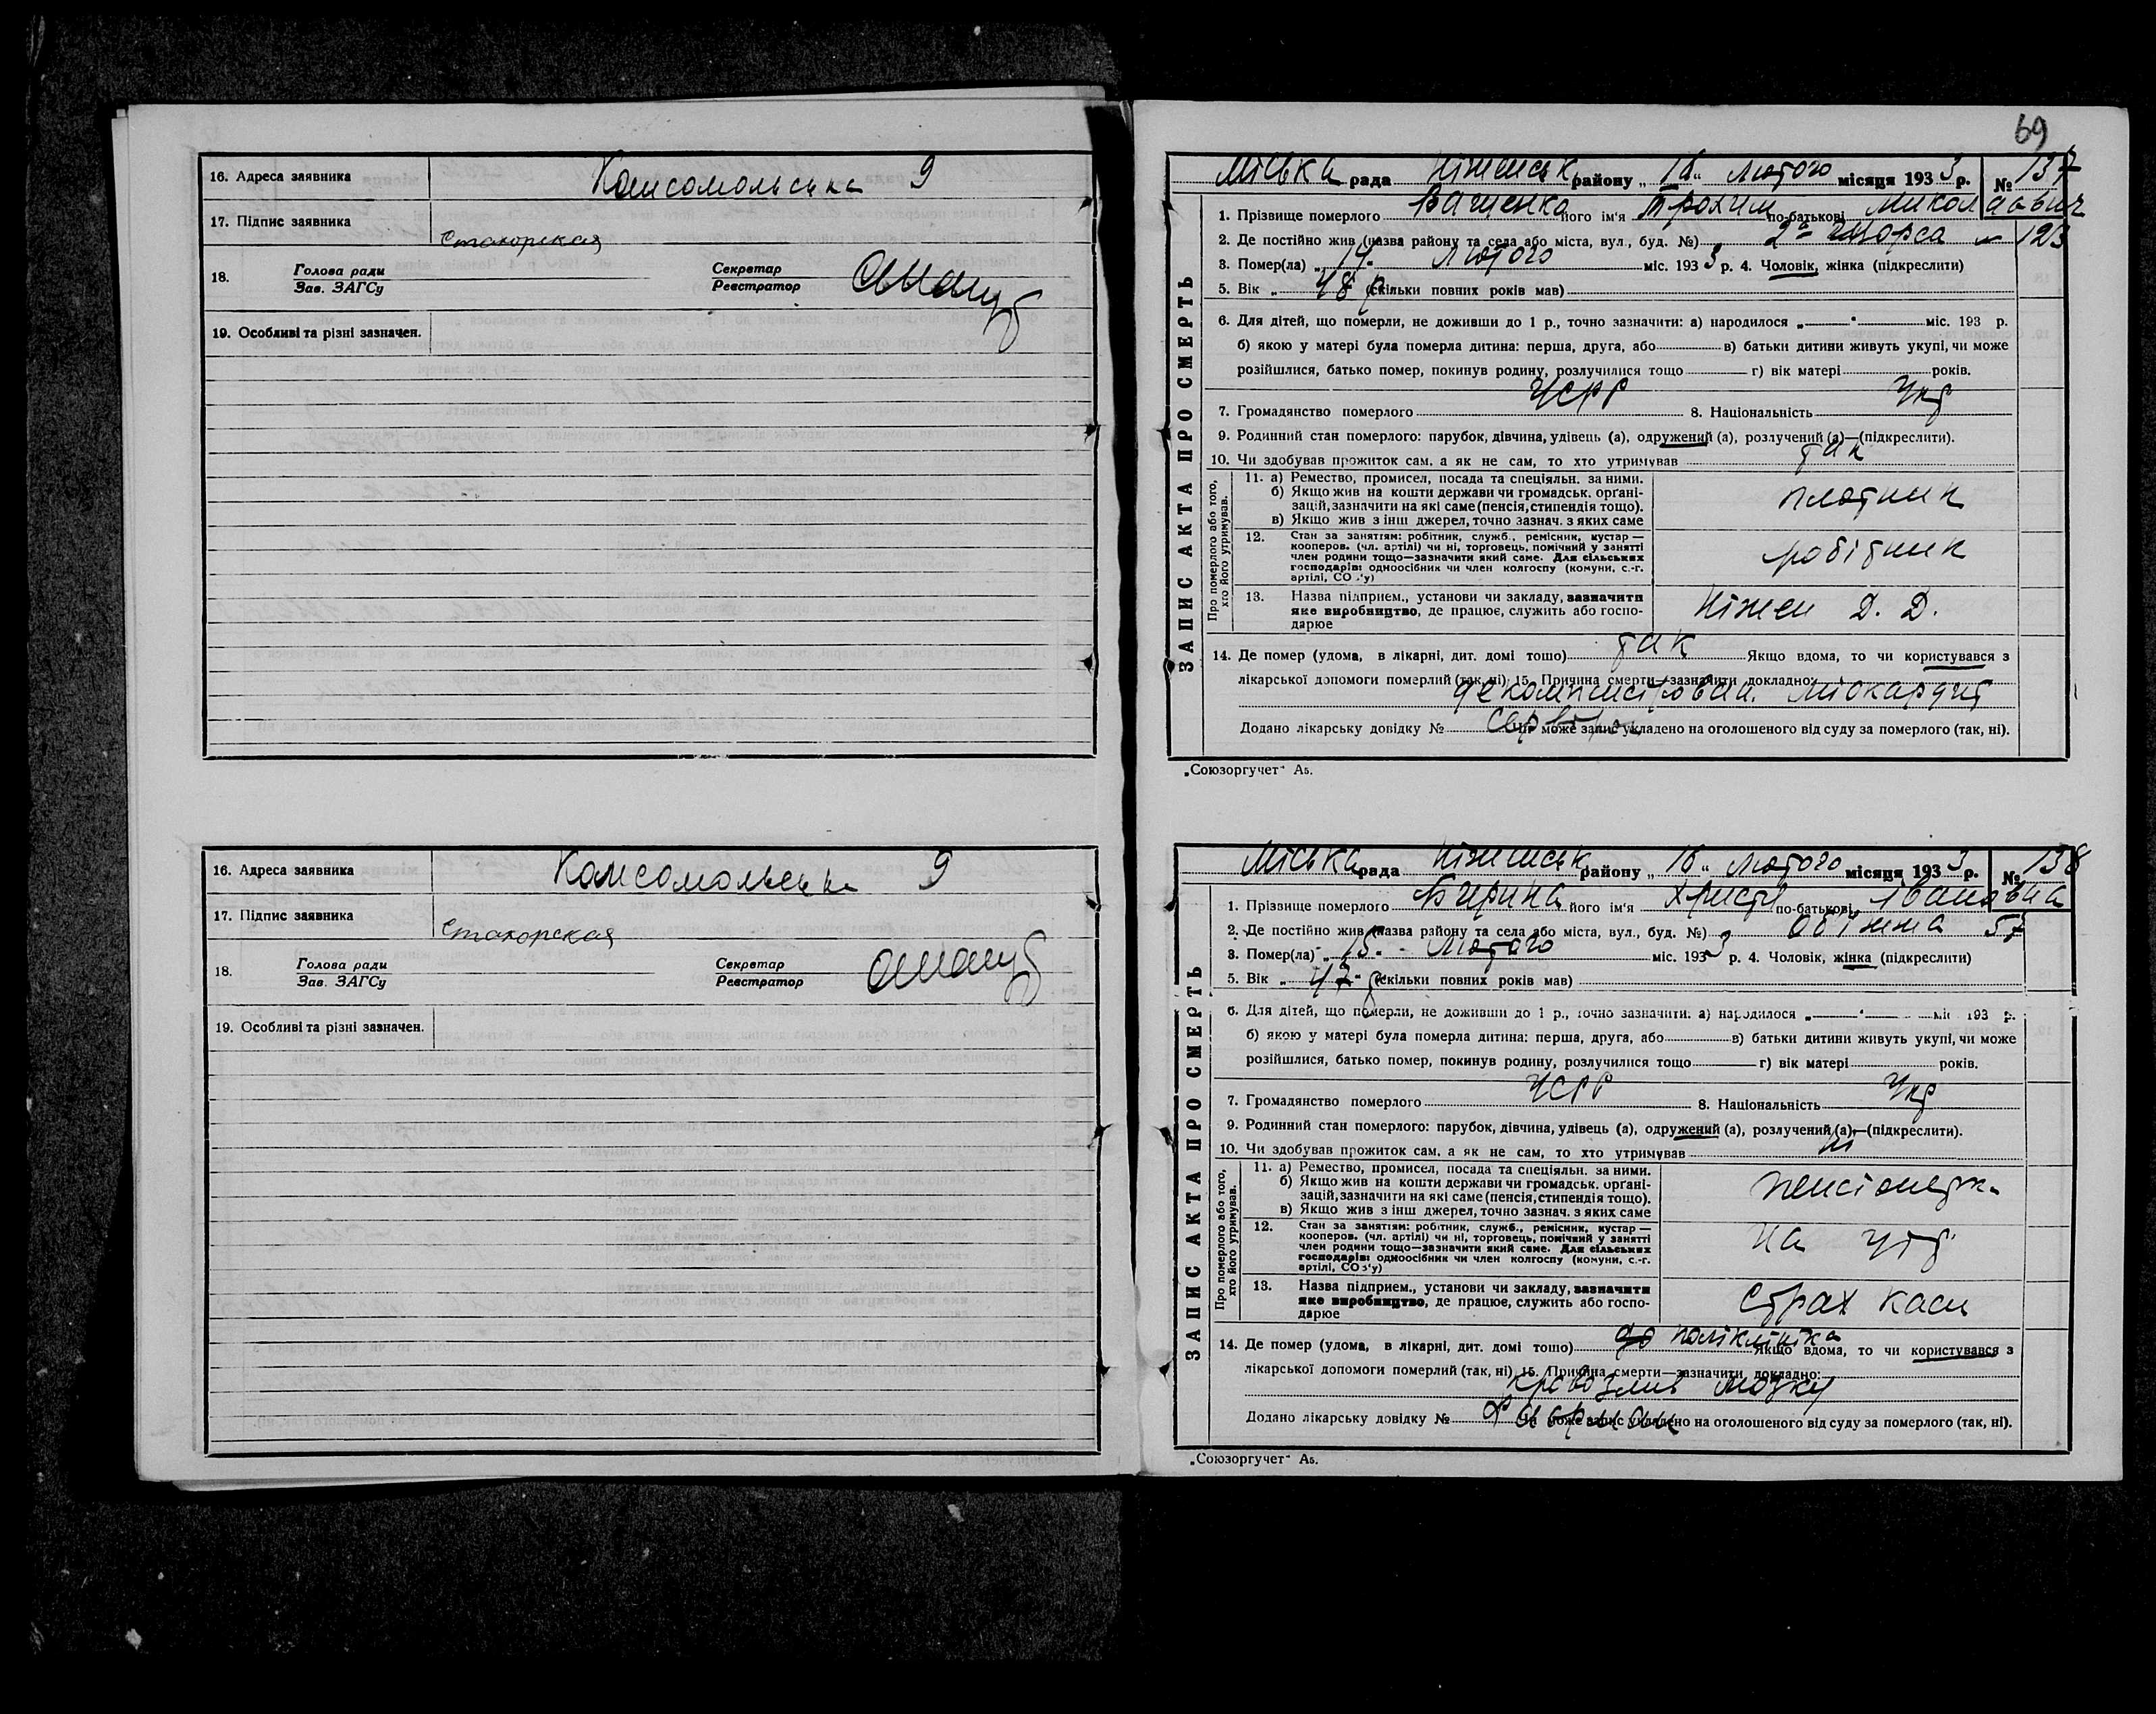 16. Адреса заявника Комсомольська 9
17. Підпис заявника Стахорская
18. Голова ради Зав. ЗАГСу Секретар Реєстратор
19. Особливі та різні зазначен.
16. Адреса заявника Комсомольська 9
17. Підпис заявника Стахорская
18. Голова ради Зав. ЗАГСу Секретар Реєстратор
19. Особливі та різні зазначен.
69
Міська рада Ніжинськ району „16“ Лютого місяця 1933 р. № 137
ЗАПИС АКТА ПРО СМЕРТЬ
1. Прізвище померлого Ващенко його ім'я Трохим по-батькові Миколаович
2. Де постійно жив (назва району та села або міста, вул., буд. №) 2а Щорса 123
3. Помер(ла) „14“ Лютого міс. 1933 р. 4. Чоловік, жінка (підкреслити)
5. Вік „48 р. (скільки повних років мав)
6. Для дітей, що померли, не доживши до 1 р., точно зазначити: а) народилося „—“ міс. 193 р.
б) якою у матері була померла дитина: перша, друга, або в) батьки дитини живуть укупі, чи може
розійшлися, батько помер, покинув родину, розлучилися тощо г) вік матері років.
7. Громадянство померлого УСРР 8. Національність Укр
9. Родинний стан померлого: парубок, дівчина, удівець (а), одружений (а), розлучений (а)—(підкреслити).
10. Чи здобував прожиток сам, а як не сам, то хто утримував так
Про померлого або того, хто його утримував.
11. а) Ремество, промисел, посада та спеціяльн. за ними.
б) Якщо жив на кошти держави чи громадськ. орґані-
зацій, зазначити на які саме (пенсія, стипендія тощо).
в) Якщо жив з інш джерел, точно зазнач. з яких саме
плотник
12. Стан за заняттям: робітник, служб., ремісник, кустар—
кооперов. (чл. артілі) чи ні, торговець, помічний у занятті
член родини тощо—зазначити який саме. Для сільських
господарів: одноосібник чи член колгоспу (комуни, с.-г.
артілі, СОЗ'у)
робітник
13. Назва підприєм., установи чи закладу, зазначити
яке виробництво, де працює, служить або госпо-
дарює
Ніжен Д. Д.
14. Де помер (удома, в лікарні, дит. домі тощо) так Якщо вдома, то чи користувався з
лікарської допомоги померлий (так, ні) 15. Причина смерти—зазначити докладно:
міокардит
Додано лікарську довідку № Чи може запис укладено на оголошеного від суду за померлого (так, ні).
„Союзоргучет“ А5.
Міська рада Ніжинськ району „16“ Лютого місяця 1933 р. № 138
ЗАПИС АКТА ПРО СМЕРТЬ
1. Прізвище померлого його ім'я Христя по-батькові Івановна
2. Де постійно жив (назва району та села або міста, вул., буд. №) Об'їжжа 57
3. Помер(ла) „15“ Лютого міс. 1933 р. 4. Чоловік, жінка (підкреслити)
5. Вік „47 р (скільки повних років мав)
6. Для дітей, що померли, не доживши до 1 р., точно зазначити: а) народилося „—“ міс 193 р.
б) якою у матері була померла дитина: перша, друга, або в) батьки дитини живуть укупі, чи може
розійшлися, батько помер, покинув родину, розлучилися тощо г) вік матері років.
7. Громадянство померлого УСРР 8. Національність Укр
9. Родинний стан померлого: парубок, дівчина, удівець (а), одружений (а), розлучений (а)—(підкреслити).
10. Чи здобував прожиток сам, а як не сам, то хто утримував ні
Про померлого або того, хто його утримував.
11. а) Ремество, промисел, посада та спеціяльн. за ними.
б) Якщо жив на кошти держави чи громадськ. орґані-
зацій, зазначити на які саме (пенсія, стипендія тощо).
в) Якщо жив з інш джерел, точно зазнач. з яких саме
пенсіонерка
12. Стан за заняттям: робітник, служб., ремісник, кустар—
кооперов. (чл. артілі) чи ні, торговець, помічний у занятті
член родини тощо—зазначити який саме. Для сільських
господарів: одноосібник чи член колгоспу (комуни, с.-г.
артілі, СОЗ'у)
на утр
13. Назва підприєм., установи чи закладу, зазначити
яке виробництво, де працює, служить або госпо-
дарює
Страх каси
14. Де помер (удома, в лікарні, дит. домі тощо) поліклініка Якщо вдома, то чи користувався з
лікарської допомоги померлий (так, ні) 15. Причина смерти—зазначити докладно:
кровозлив мозку
Додано лікарську довідку № Чи може запис укладено на оголошеного від суду за померлого (так, ні).
„Союзоргучет“ А5.